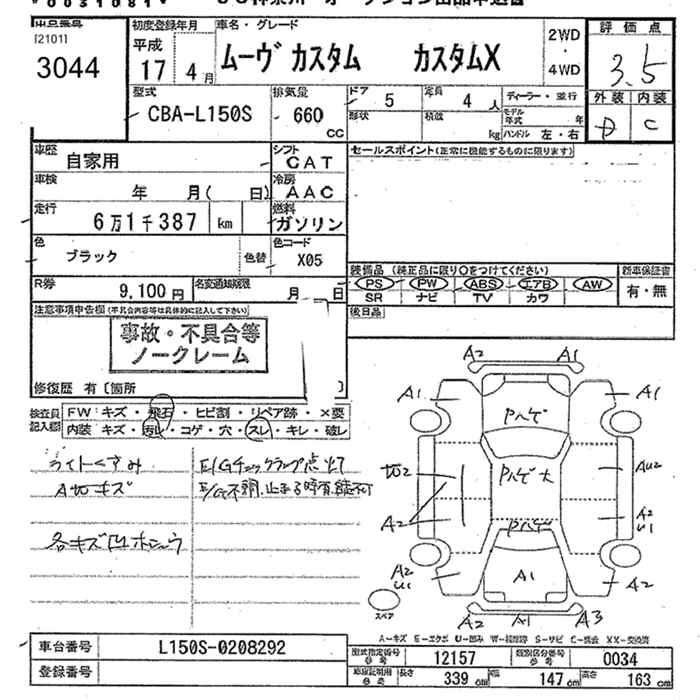 *0031081*
[2101]
3044
初度登録年月
平成
17 4月
車名・グレード
ムーヴ カスタム カスタムX
2WD
・
4WD
評価点
3.5
外装 内装
D C
型式
CBA-L150S
排気量
660
CC
ドア
5
定員
4 人
ディーラー・並行
形状
積載
kg
モデル年式 年
ハンドル 左・右
車歴
自家用
シフト
CAT
車検
年 月( 日)
冷房
AAC
走行
6万1千387 km
燃料
ガソリン
色
ブラック
色替
色コード
X05
R券
9,100円
名変通知期限
月 日
セールスポイント(正常に機能するものに限ります)
装備品 (純正品に限り○をつけてください)
新車保証書
PS PW ABS エアB AW
SR ナビ TV カワ
有・無
後日品
注意事項申告欄(不具合内容等は具体的に記入して下さい)
事故・不具合等
ノークレーム
修復歴 有〔箇所 〕
検査員記入欄
FW:キズ・飛石・ヒビ割・リペア跡・×要
内装 キズ・汚レ・コゲ・穴・スレ・キレ・破レ
ライトくすみ
A切キズ
各キズ凹ホシュウ
E/Gチェックランプ点灯
E/G不調.止まる時有.
A2 A1
A1 A1
Pハゲ
切2 Pハゲ大 AU2
A2 Pハゲ A2 U1
A2 U1 A1 A2
A2 A1 A3
スペア
A-キズ E-エクボ U-凹み W-補修跡 S-サビ C-腐食 XX-交換済
車台番号
L150S-0208292
登録番号
型式指定番号 参考
12157
類別区分番号 参考
0034
車庫証明用 参考
長さ 339 cm 幅 147 cm 高さ 163 cm